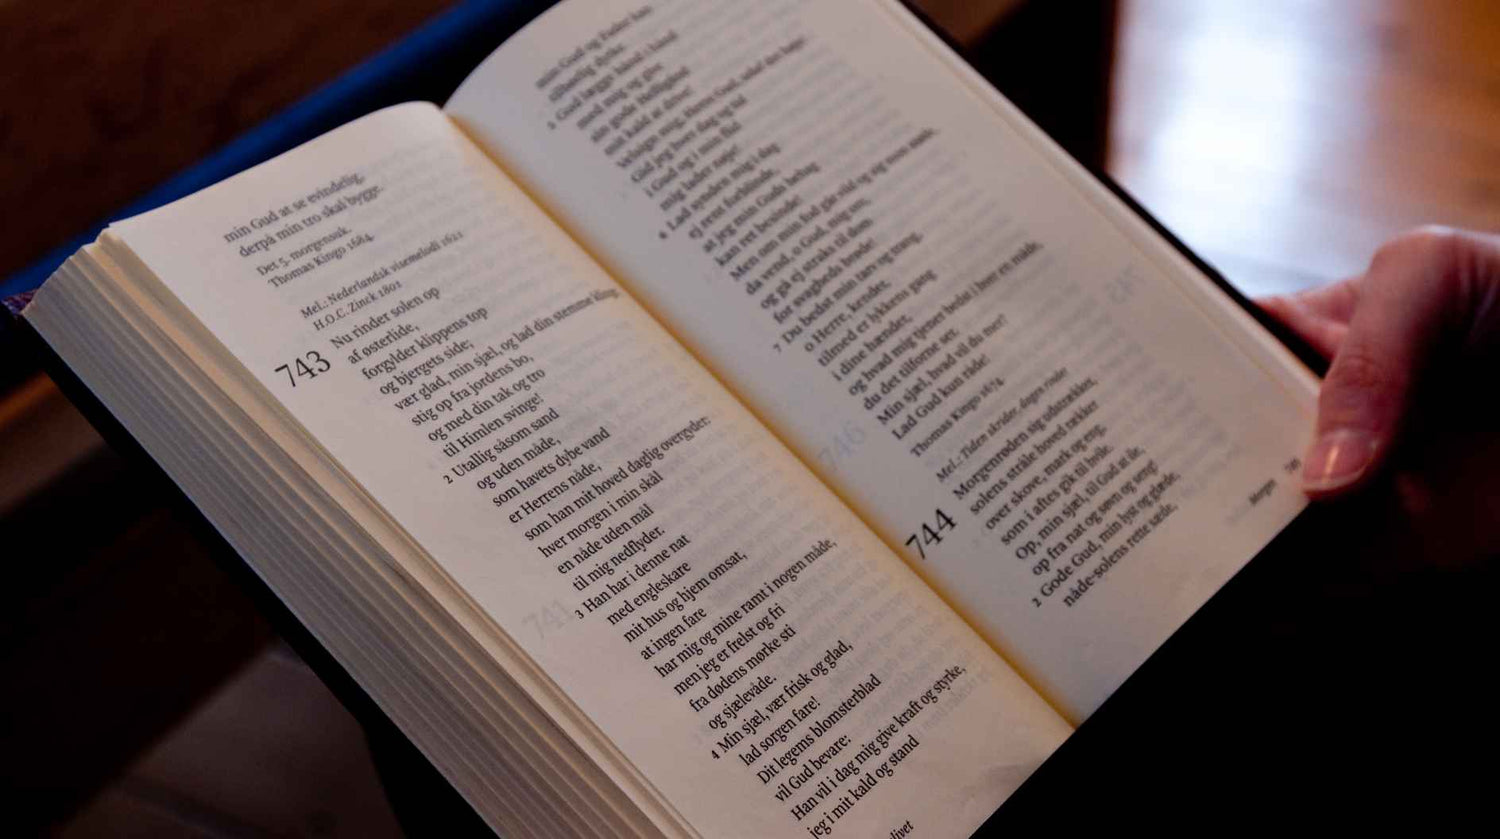 min Gud at se evindelig,
derpå min tro skal bygge.
Det 5. morgensuk.
Thomas Kingo 1684.
Mel.: Nederlandsk visemelodi 1621
H.O.C. Zinck 1801
743
Nu rinder solen op
af østerlide,
forgylder klippens top
og bjergets side;
vær glad, min sjæl, og lad din stemme kling
stig op fra jordens bo,
og med din tak og tro
til Himlen svinge!
2 Utallig såsom sand
og uden måde,
som havets dybe vand
er Herrens nåde,
som han mit hoved daglig overgyder:
hver morgen i min skål
en nåde uden mål
til mig nedflyder.
3 Han har i denne nat
med engleskare
mit hus og hjem omsat,
at ingen fare
har mig og mine ramt i nogen måde,
men jeg er frelst og fri
fra dødens mørke sti
og sjælevåde.
4 Min sjæl, vær frisk og glad,
lad sorgen fare!
Dit legems blomsterblad
vil Gud bevare:
Han vil i dag mig give kraft og styrke,
jeg i mit kald og stand
min Gud og Fader kan
tilbørlig dyrke.
5 Gud lægge hånd i hånd
med mig og give
sin gode Helligånd
mit kald at drive
velsigne mig, Herren Gud,
Gid jeg hver dag og tid
i Gud og i min flid
mig lader nøje!
6 Lad synden mig i dag
ej rent forblinde,
at jeg min Guds behag
kan ret besinde!
Men om min fod går vild og og snart snåde,
da vend, o Gud, mig om,
og gå ej straks til dom
for svagheds brøde!
7 Du bedst min tarv og trang,
o Herre, kender,
tilmed er lykkens gang
i dine hænder,
og hvad mig tjener bedst i hver en måde,
du det tilforne ser.
Min sjæl, hvad vil du mer?
Lad Gud kun råde!
Thomas Kingo 1674.
Mel.: Tiden skrider, dagen rinder
744
Morgenrøden sig udstrækker,
solens stråle hoved rækker
over skove, mark og eng,
som i aftes gik til hvile.
Op, min sjæl, til Gud at ile,
op fra nat og søvn og seng!
2 Gode Gud, min lyst og glæde,
nåde-solens rette sæde,
Morgen